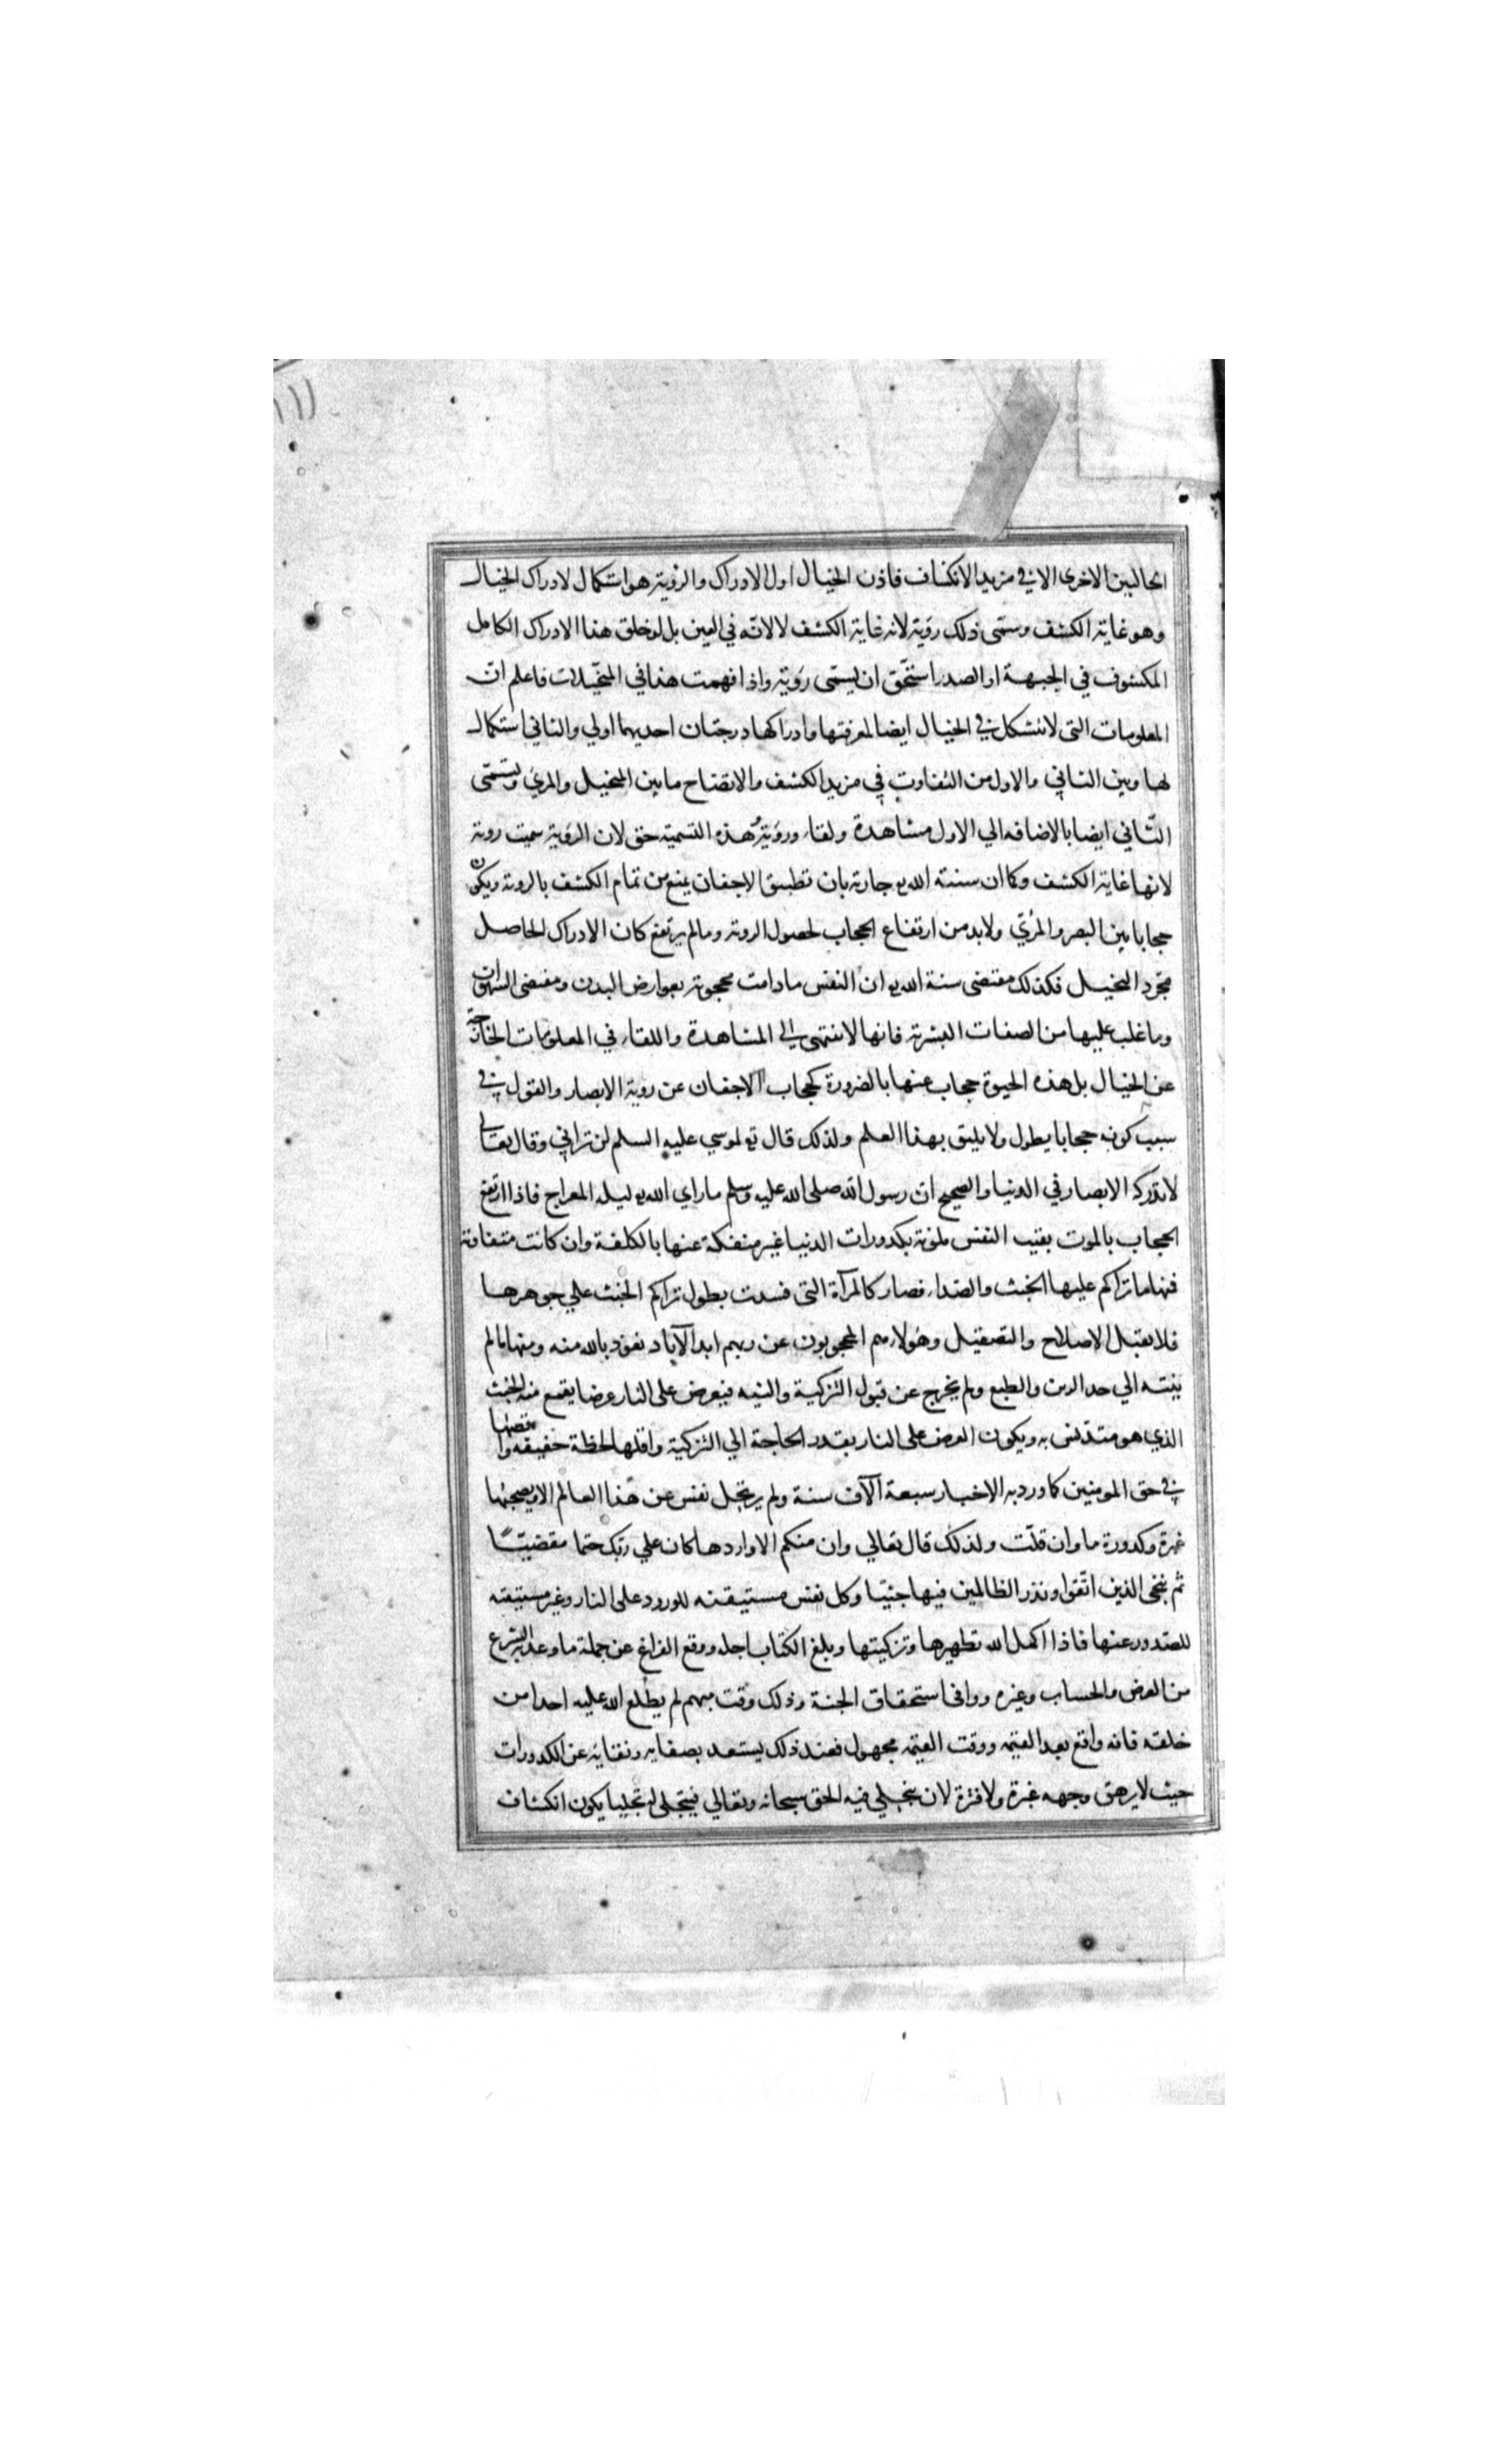 الحالتين الاخرى الا في مزيد الانكشاف فاذن الخيال اول الادراك والرؤية هو استكمال لادراك الخيال
وهو غاية الكشف وسمّى ذلك رؤية لانه غاية الكشف لا لانّه في العين بل لو خلق هذا الادراك الكامل
المكشوف في الجبهة او الصدر استحّق ان يسمّى رؤية واذا فهمت هذا في المتخيّلات فاعلم انّ
المعلومات التى لا تتشكل في الخيال ايضا لمعرفتها وادراكها درجتان احديهما اولي والثاني استكمال
لها وبين الثاني والاول من التفاوت في مزيد الكشف والاتضاح ما بين المتخيل والمرئ ويسمّى
الثّاني ايضا بالاضافه الي الاول مشاهدة ولقاء ورؤية وهذه التسمية حق لان الرؤية سميت روية
لانها غاية الكشف وكما ان سنته الله تع جارية بان تطبيق الاجفان يمنع من تمام الكشف بالروية ويكون
حجابا بين البصر والمرئي ولا بد من ارتفاع الحجاب لحصول الروية وما لم يرتفع كان الادراك الحاصل
مجّرد التخيل فكذلك مقتضى سنة الله تع ان النفس ما دامت محجوبة بعوارض البدن ومقتضى الشهوات
وما غلب عليها من الصفات البشرية فانها لا تنتهى الي المشاهدة واللقاء في المعلومات الخارجة
عن الخيال بل هذه الحيوة حجاب عنها بالضرورة كحجاب الاجفان عن روية الابصار والقول في
سبب كونه حجابا يطول ولا يليق بهذا العلم ولذلك قال تع لموسي عليه السلم لن تراني وقال تعالى
لا تدركه الابصار في الدنيا والصحيح ان رسول الله صلى الله عليه وسلم ما راي الله تع ليله المعراج فاذا ارتفع
الحجاب بالموت بقيت النفس ملوثة بكدورات الدنيا غير منفكة عنها بالكلفة وان كانت متفاوتة
فمنها ما تراكم عليها الخبث والصداء فصار كالمرآة التى فسدت بطول تراكم الخبث علي جوهرها
فلا يقبل الاصلاح والتصقيل وهؤلاء هم المحجوبون عن ربهم ابد الآباد نعوذ بالله منه ومنها ما لم
ينته الي حد الرين والطبع ولم يخرج عن قبول التزكية والتيه فيعرض على النار عرضا يقمع منه الخبث
الذي هو متدنس به ويكون العرض على النار بقدر الحاجة الي التزكية واقلها لحظة خفيفه واقصها
في حق المومنين كما ورد به الاخبار سبعة آلاف سنة ولم يرتحل نفس عن هذا العالم الا ويصحبها
غبرة وكدورة ما وان قلّت ولذلك قال تعالي وان منكم الا واردها كان علي ربّك حتما مقضيّاً
ثم ننجى الذين اتّقوا ونذر الظالمين فيها جثيّا وكل نفس مستيقنه للورود على النار وغير مستيقنه
للصّدور عنها فاذا اكمل الله تطهيرها وتزكيتها وبلغ الكتاب اجله ووقع الفراغ عن جملة ما وعد به الشرع
من العرض والحساب وغيره ووافى استحقاق الجنة وذلك وقت مبهم لم يطلع الله عليه احدا من
خلقه فانه واقع بعد القيمه ووقت القيمه مجهول فعند ذلك يستعد بصفايه ونقايه عن الكدورات
حيث لا يرهق وجهه غبرة ولا قترة لان يتجلي فيه الحق سبحانه وتعالي فيتجلى له تجليا يكون انكشاف